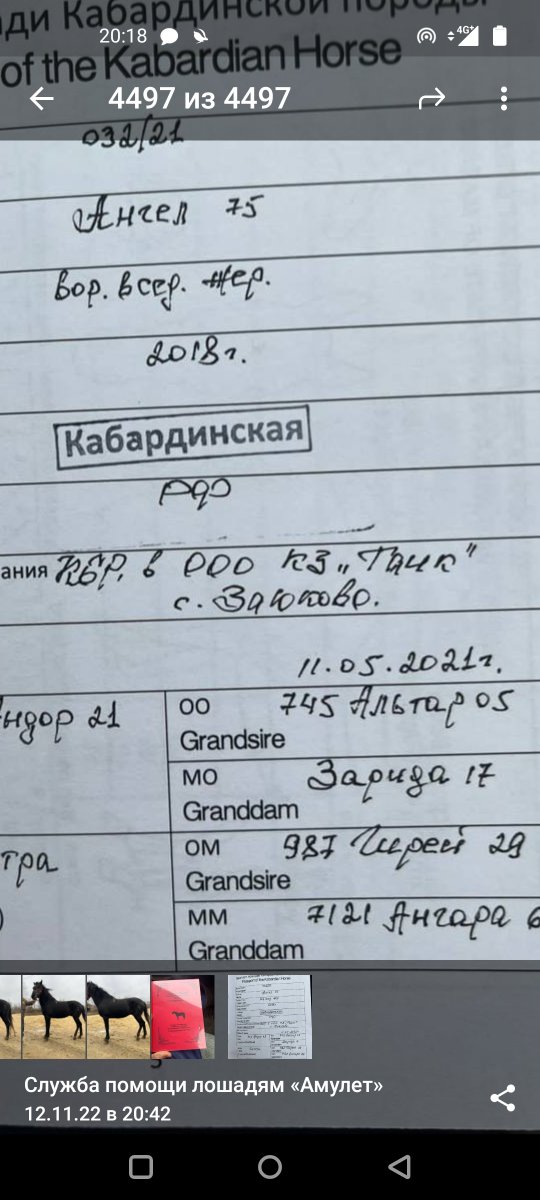 ди Кабардинской породы
20:18 4G+
of the Kabardian Horse
4497 из 4497
032/21
Ангел 75
вор. в сер. жер.
2018 г.
Кабардинская
РФ
ания КБР. в ООО КЗ "Тлик"
с. Заюково.
11.05.2021 г.
ндор 21
ОО 745 Альтар 05
Grandsire
МО Зарида 17
Granddam
тра
ОМ 987 Гирей 29
Grandsire
)
ММ 7121 Ангара 6
Granddam
Служба помощи лошадям «Амулет»
12.11.22 в 20:42